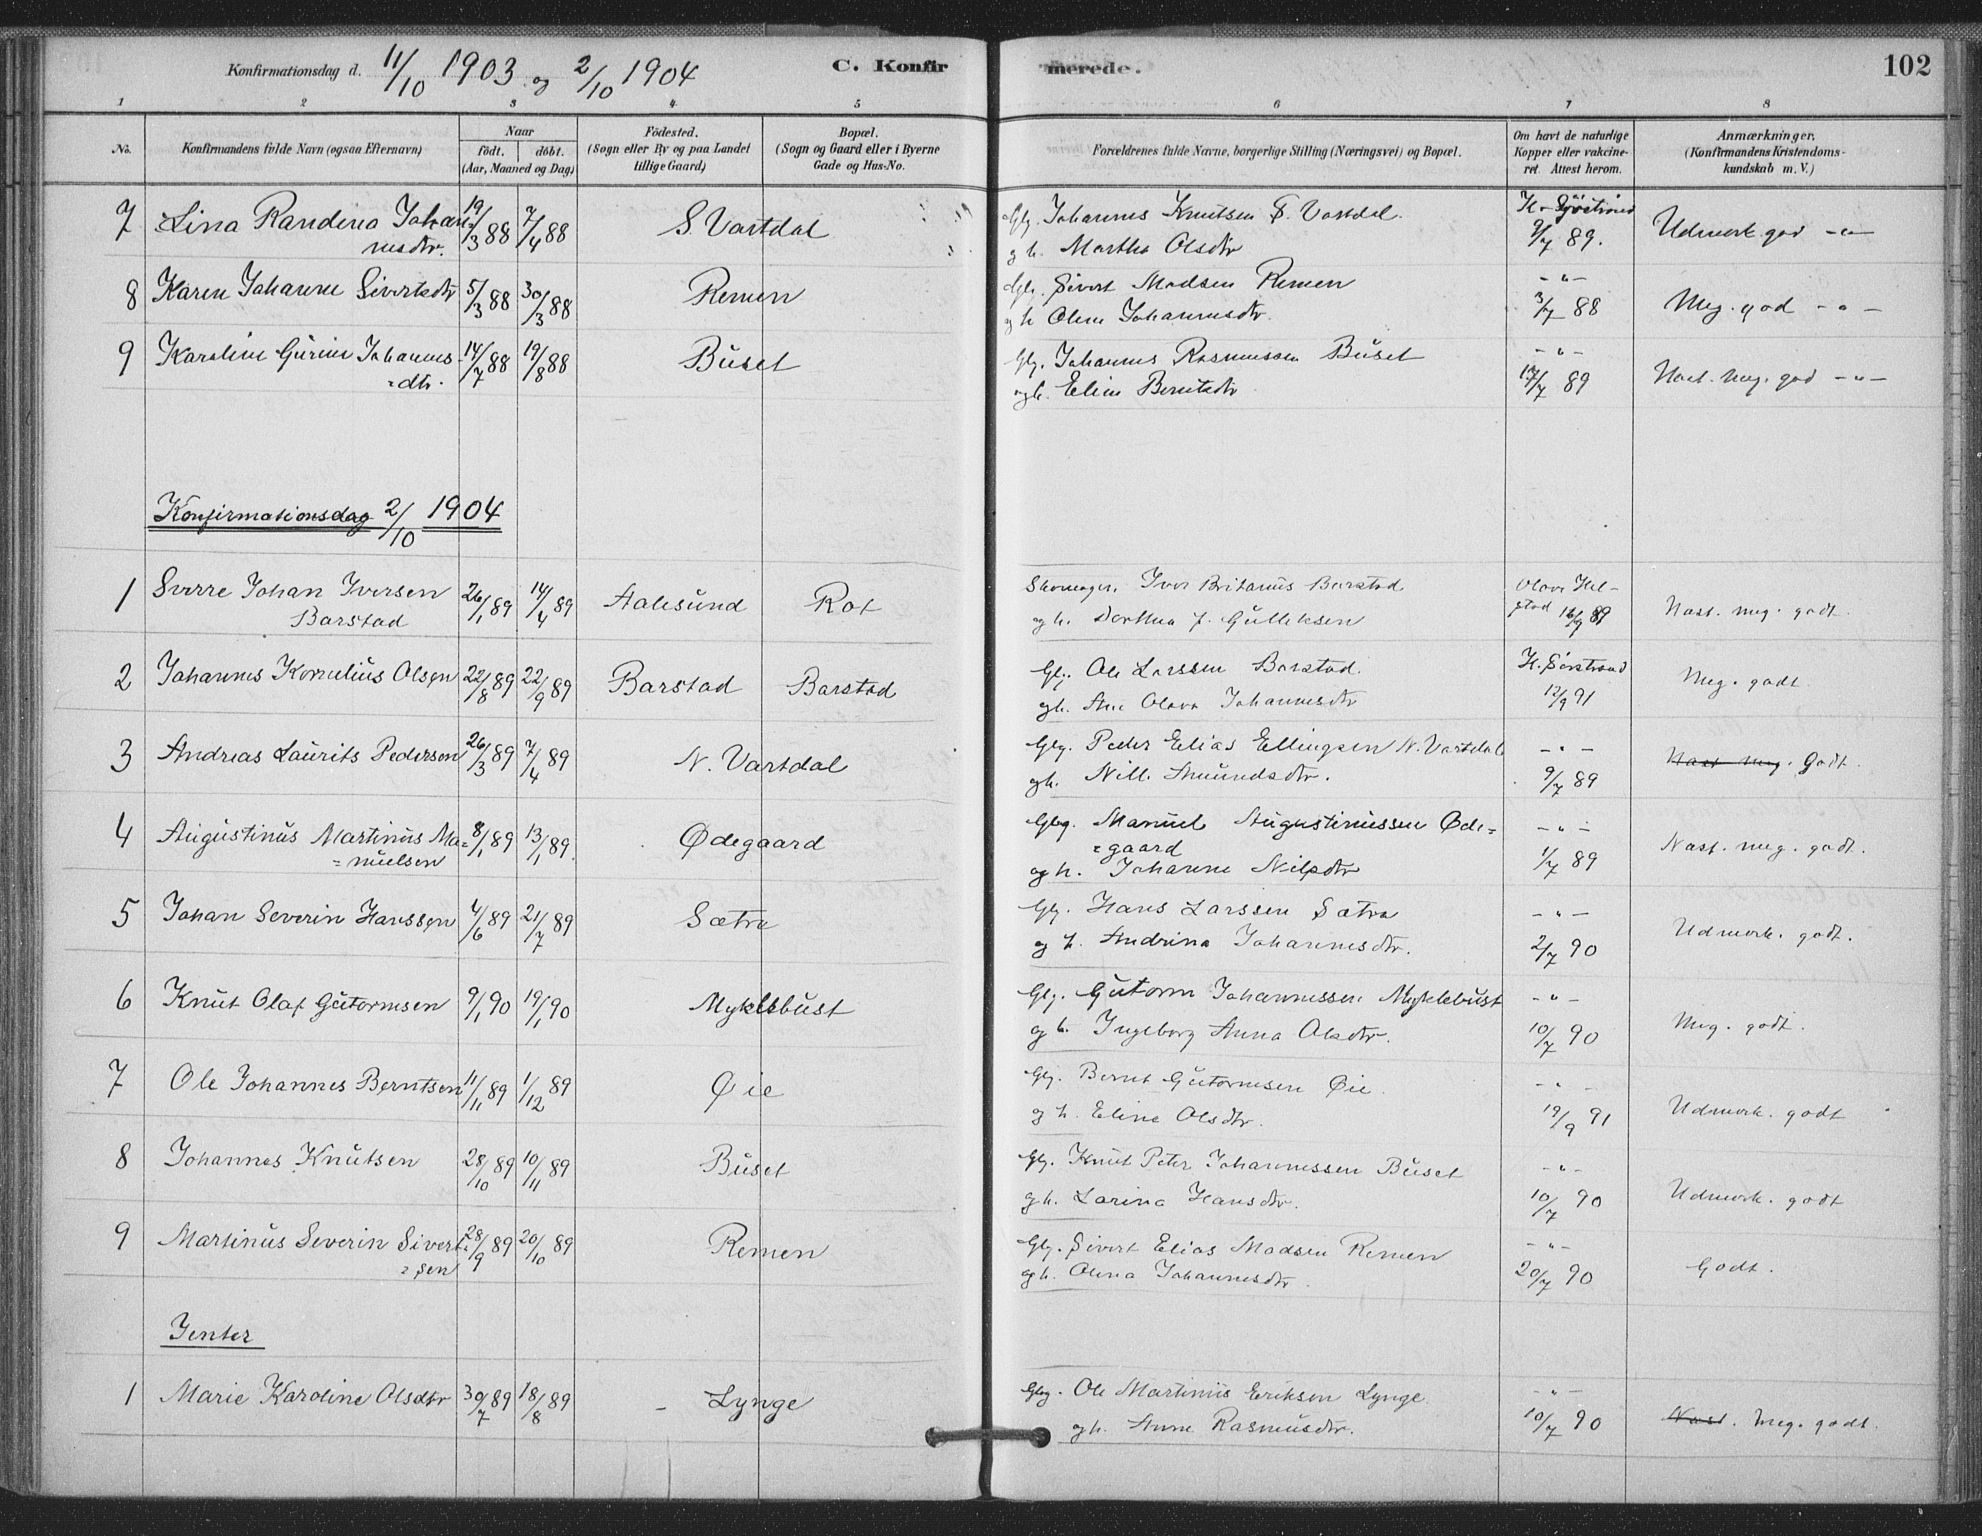 Konfirmationsdag d. 11/10 1903 og 2/10 1904 C. Konfirmerede. 102
1 2 3 4 5 6 7 8
No. Konfirmandens fulde Navn (ogsaa Efternavn) Naar födt. döbt. (Aar, Maaned og Dag) Födested. (Sogn eller By og paa Landet tillige Gaard) Bopæl. (Sogn og Gaard eller i Byerne Gade og Hus-No. Forældrenes fulde Navne, borgerlige Stilling (Næringsvei) og Bopæl. Om havt de naturlige Kopper eller vakcineret. Attest herom. Anmærkninger. (Konfirmandens Kristendomskundskab m. V.)
7 Lina Randena Johan- 19/3 88 7/4 88 S. Vartdal Gbr. Johannes Knutsen S. Vartdal. H. Sørstrand
nesdtr. og h. Martha Olsdtr 9/7 89. Udmerk. god -"-
8 Karen Johanne Sivertsdtr 5/3 88 30/3 88 Remen Gbr. Sivert Madsen Remen -"-
og h Oline Johannesdtr. 3/7 88 Meg. god -"-
9 Karoline Gurine Johannes- 14/7 88 19/8 88 Buset Gbr. Johannes Rasmussen Buset -"-
=dtr. og h. Eline Berntsdtr 17/7 89 Nast. meg. god -"-
Konfirmationsdag 2/10 1904
1 Sverre Johan Iversen 26/1 89 14/4 89 Aalesund Rot Skomager. Iver Britanus Barstad Olava Hel-
Barstad og h. Dorthea J. Gulleksen gstad 16/9 89 Nast. meg. godt.
2 Johannes Kornelius Olsen 22/8 89 22/9 89 Barstad Barstad Gbr. Ole Larssen Barstad. H. Sørstrand
og h. Ane Olava Johannesdtr 12/9 91 Meg. godt
3 Andreas Laurits Pedersen 26/3 89 7/4 89 N. Vartdal Gbr. Peder Elias Ellingsen N. Vartdal -"-
og h. Nill. Amundsdtr. 9/7 89 Nast meg. Godt.
4 Augustinus Martinus Ma= 8/1 89 13/1 89. Ødegaard Gbr. Manuel Augustinussen Øde= -"-
=nuelsen =gaard
og h. Johanne Nilsdtr 1/7 89 Nast. meg. godt.
5 Johan Severin Hanssen 4/6 89 21/7 89 Sætre Gbr. Hans Larssen Sætre -"-
og h. Andrina Johannesdtr. 2/7 90 Udmerk. godt.
6 Knut Olaf Gutormsen 9/1 90 19/1 90 Myklebust Gbr. Gutorm Johannessen Myklebust -"-
og h. Ingeborg Anna Olsdtr. 10/7 90 Meg. godt.
7 Ole Johannes Berntsen 11/11 89 1/12 89 Øie Gbr. Bernt Gutormsen Øie -"-
og h. Eline Olsdtr. 19/9 91 Udmerk. godt
8 Johannes Knutsen 28/10 89 10/11 89 Buset Gbr. Knut Peter Johannessen Buset -"-
og h. Larina Hansdtr. 10/7 90 Udmerk. godt
9 Martinus Severin Sivert= 28/9 89 20/10 89 Remen Gbr. Sivert Elias Madsen Remen -"-
=sen og h. Olina Johannesdtr 20/7 90 Godt.
Jenter
1 Marie Karoline Olsdtr 30/7 89 18/8 89 Lynge Gbr. Ole Martinus Eriksen Lynge -"-
og h. Anne Rasmusdtr. 10/7 90 Nast. meg. godt.